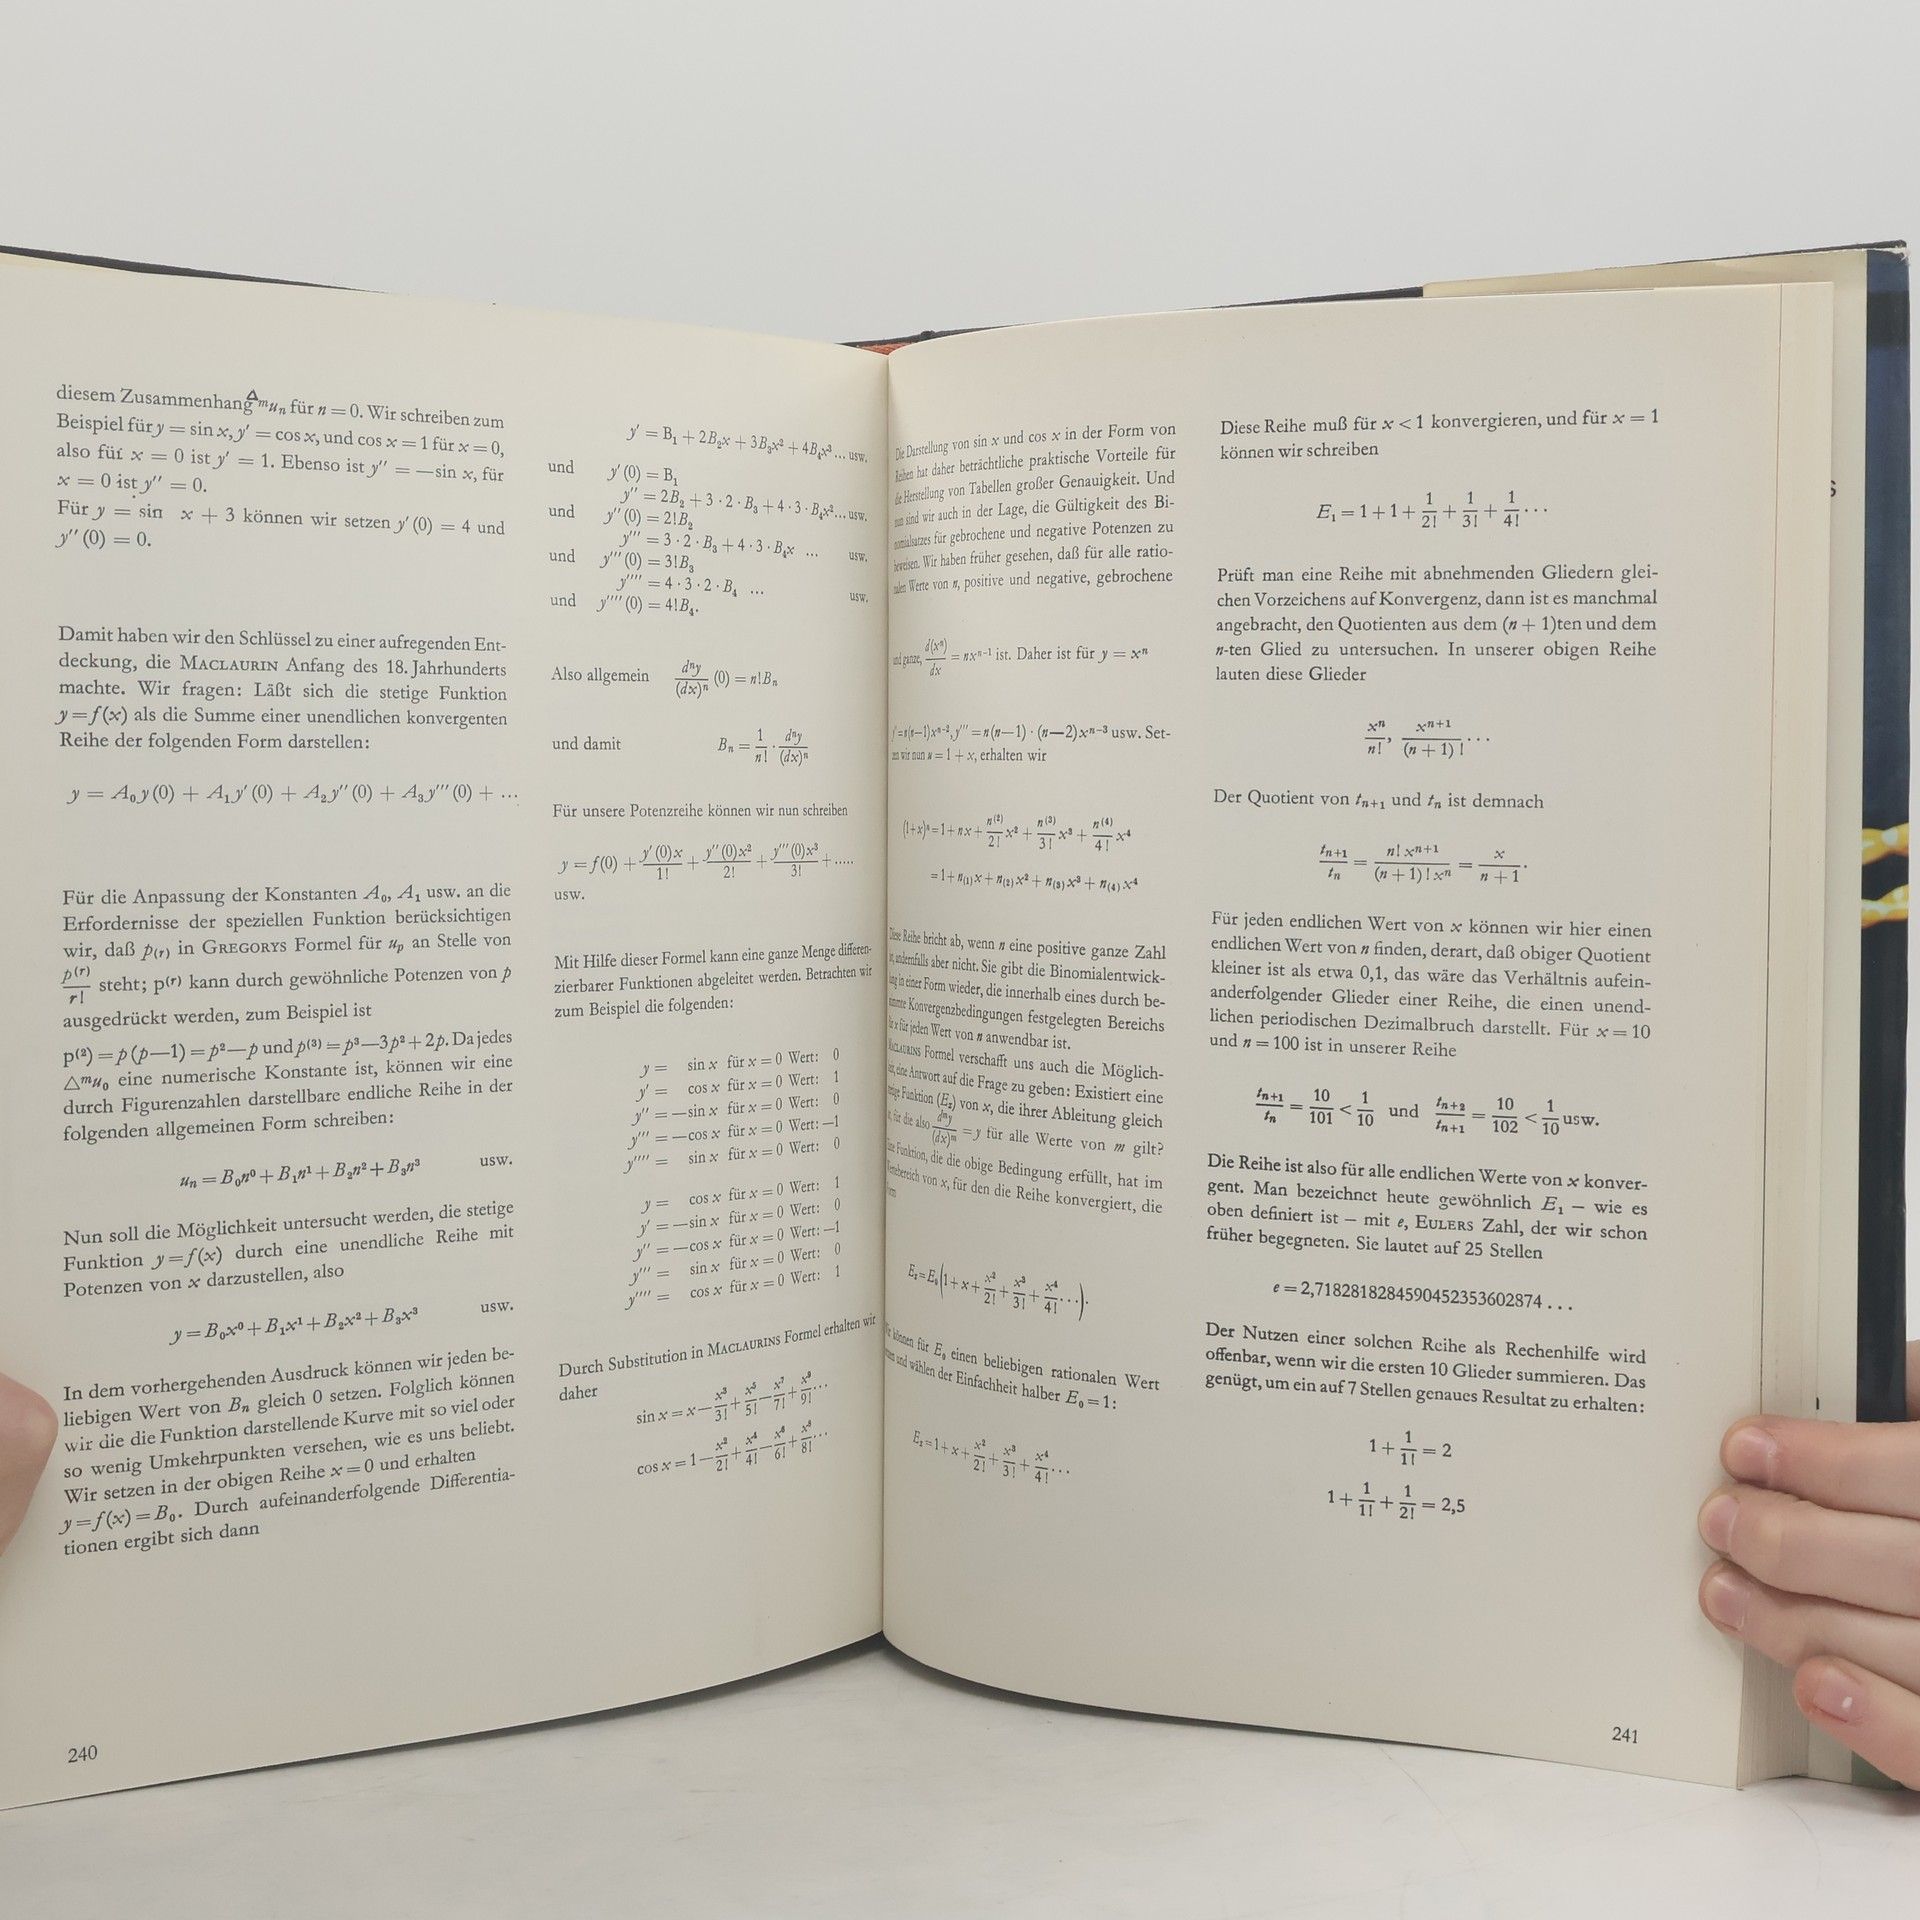 diesem Zusammenhang Δᵐuₙ für n = 0. Wir schreiben zum
Beispiel für y = sin x, y′ = cos x, und cos x = 1 für x = 0,
also für x = 0 ist y′ = 1. Ebenso ist y′′ = —sin x, für
x = 0 ist y′′ = 0.
Für y = sin x + 3 können wir setzen y′ (0) = 4 und
y′′ (0) = 0.
Damit haben wir den Schlüssel zu einer aufregenden Ent-
deckung, die MACLAURIN Anfang des 18. Jahrhunderts
machte. Wir fragen: Läßt sich die stetige Funktion
y = f(x) als die Summe einer unendlichen konvergenten
Reihe der folgenden Form darstellen:
y = A₀y(0) + A₁y′(0) + A₂y′′(0) + A₃y′′′(0) + ...
Für die Anpassung der Konstanten A₀, A₁ usw. an die
Erfordernisse der speziellen Funktion berücksichtigen
wir, daß p₍ᵣ₎ in GREGORYS Formel für uₚ an Stelle von
p⁽ʳ⁾/r! steht; p⁽ʳ⁾ kann durch gewöhnliche Potenzen von p
ausgedrückt werden, zum Beispiel ist
p⁽²⁾ = p (p—1) = p²—p und p⁽³⁾ = p³—3p² + 2p. Da jedes
△ᵐu₀ eine numerische Konstante ist, können wir eine
durch Figurenzahlen darstellbare endliche Reihe in der
folgenden allgemeinen Form schreiben:
uₙ = B₀n⁰ + B₁n¹ + B₂n² + B₃n³ usw.
Nun soll die Möglichkeit untersucht werden, die stetige
Funktion y = f(x) durch eine unendliche Reihe mit
Potenzen von x darzustellen, also
y = B₀x⁰ + B₁x¹ + B₂x² + B₃x³ usw.
In dem vorhergehenden Ausdruck können wir jeden be-
liebigen Wert von Bₙ gleich 0 setzen. Folglich können
wir die die Funktion darstellende Kurve mit so viel oder
so wenig Umkehrpunkten versehen, wie es uns beliebt.
Wir setzen in der obigen Reihe x = 0 und erhalten
y = f(x) = B₀. Durch aufeinanderfolgende Differentia-
tionen ergibt sich dann
240
y′ = B₁ + 2B₂x + 3B₃x² + 4B₄x³ ... usw.
und y′ (0) = B₁
y′′ = 2B₂ + 3 · 2 · B₃ + 4 · 3 · B₄x² ... usw.
und y′′(0) = 2!B₂
y′′′ = 3 · 2 · B₃ + 4 · 3 · B₄x ... usw.
und y′′′(0) = 3!B₃
y′′′′ = 4 · 3 · 2 · B₄ ... usw.
und y′′′′(0) = 4!B₄.
Also allgemein dⁿy/(dx)ⁿ (0) = n!Bₙ
und damit Bₙ = 1/n! · dⁿy/(dx)ⁿ
Für unsere Potenzreihe können wir nun schreiben
y = f(0) + y′(0)x/1! + y′′(0)x²/2! + y′′′(0)x³/3! + .....
usw.
Mit Hilfe dieser Formel kann eine ganze Menge differen-
zierbarer Funktionen abgeleitet werden. Betrachten wir
zum Beispiel die folgenden:
y = sin x für x = 0 Wert: 0
y′ = cos x für x = 0 Wert: 1
y′′ = —sin x für x = 0 Wert: 0
y′′′ = —cos x für x = 0 Wert: —1
y′′′′ = sin x für x = 0 Wert: 0
y = cos x für x = 0 Wert: 1
y′ = —sin x für x = 0 Wert: 0
y′′ = —cos x für x = 0 Wert: —1
y′′′ = sin x für x = 0 Wert: 0
y′′′′ = cos x für x = 0 Wert: 1
Durch Substitution in MACLAURINS Formel erhalten wir
daher
sin x = x — x³/3! + x⁵/5! — x⁷/7! + x⁹/9! ...
cos x = 1 — x²/2! + x⁴/4! — x⁶/6! + x⁸/8! ...
Die Darstellung von sin x und cos x in der Form von
Reihen hat daher beträchtliche praktische Vorteile für
die Herstellung von Tabellen großer Genauigkeit. Und
nun sind wir auch in der Lage, die Gültigkeit des Bi-
nomialsatzes für gebrochene und negative Potenzen zu
beweisen. Wir haben früher gesehen, daß für alle ratio-
nalen Werte von n, positive und negative, gebrochene
und ganze, d(xⁿ)/dx = nxⁿ⁻¹ ist. Daher ist für y = xⁿ
y′′ = n(n—1)xⁿ⁻², y′′′ = n (n—1) · (n—2)xⁿ⁻³ usw. Set-
zen wir nun u = 1 + x, erhalten wir
(1+x)ⁿ = 1 + nx + n⁽²⁾/2! x² + n⁽³⁾/3! x³ + n⁽⁴⁾/4! x⁴
= 1 + n₍₁₎x + n₍₂₎x² + n₍₃₎x³ + n₍₄₎x⁴
Diese Reihe bricht ab, wenn n eine positive ganze Zahl
ist, andernfalls aber nicht. Sie gibt die Binomialentwick-
lung in einer Form wieder, die innerhalb eines durch be-
stimmte Konvergenzbedingungen festgelegten Bereichs
für x für jeden Wert von n anwendbar ist.
MACLAURINS Formel verschafft uns auch die Möglich-
keit, eine Antwort auf die Frage zu geben: Existiert eine
stetige Funktion (Eₓ) von x, die ihrer Ableitung gleich
ist, für die also dᵐy/(dx)ᵐ = y für alle Werte von m gilt?
Eine Funktion, die die obige Bedingung erfüllt, hat im
Wertebereich von x, für den die Reihe konvergiert, die
Form
Eₓ = E₀(1 + x + x²/2! + x³/3! + x⁴/4! ...).
Wir können für E₀ einen beliebigen rationalen Wert
setzen und wählen der Einfachheit halber E₀ = 1:
Eₓ = 1 + x + x²/2! + x³/3! + x⁴/4! ...
Diese Reihe muß für x < 1 konvergieren, und für x = 1
können wir schreiben
E₁ = 1 + 1 + 1/2! + 1/3! + 1/4! ...
Prüft man eine Reihe mit abnehmenden Gliedern glei-
chen Vorzeichens auf Konvergenz, dann ist es manchmal
angebracht, den Quotienten aus dem (n + 1)ten und dem
n-ten Glied zu untersuchen. In unserer obigen Reihe
lauten diese Glieder
xⁿ/n!, xⁿ⁺¹/(n + 1)! ...
Der Quotient von tₙ₊₁ und tₙ ist demnach
tₙ₊₁/tₙ = n! xⁿ⁺¹/(n + 1)! xⁿ = x/n + 1.
Für jeden endlichen Wert von x können wir hier einen
endlichen Wert von n finden, derart, daß obiger Quotient
kleiner ist als etwa 0,1, das wäre das Verhältnis aufein-
anderfolgender Glieder einer Reihe, die einen unend-
lichen periodischen Dezimalbruch darstellt. Für x = 10
und n = 100 ist in unserer Reihe
tₙ₊₁/tₙ = 10/101 < 1/10 und tₙ₊₂/tₙ₊₁ = 10/102 < 1/10 usw.
Die Reihe ist also für alle endlichen Werte von x konver-
gent. Man bezeichnet heute gewöhnlich E₁ — wie es
oben definiert ist — mit e, EULERS Zahl, der wir schon
früher begegneten. Sie lautet auf 25 Stellen
e = 2,7182818284590452353602874 ...
Der Nutzen einer solchen Reihe als Rechenhilfe wird
offenbar, wenn wir die ersten 10 Glieder summieren. Das
genügt, um ein auf 7 Stellen genaues Resultat zu erhalten:
1 + 1/1! = 2
1 + 1/1! + 1/2! = 2,5
241